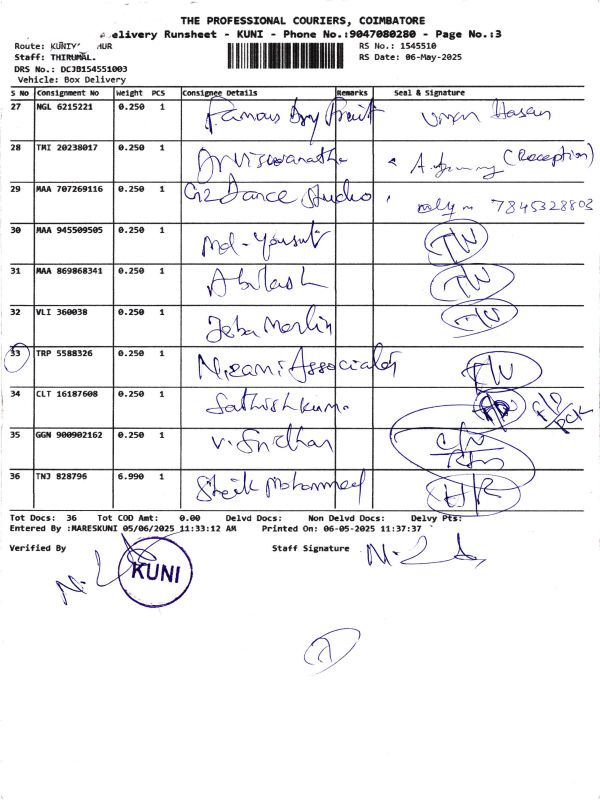 THE PROFESSIONAL COURIERS, COIMBATORE
Delivery Runsheet - KUNI - Phone No.:9047080280 - Page No.:3
Route: KUNIY HUR
RS No.: 1545510
Staff: THIRUMAL.
RS Date: 06-May-2025
DRS No.: DCJB154551003
Vehicle: Box Delivery
S No Consignment No Weight PCS Consignee Details Remarks Seal & Signature
27 NGL 6215221 0.250 1 Famous Dry Fruit Hasan
28 TMI 20238017 0.250 1 (Reception)
29 MAA 707269116 0.250 1 G2 Dance Studio 7845328803
30 MAA 945509505 0.250 1 Md-Yousuf
31 MAA 869868341 0.250 1 Abilash
32 VLI 360038 0.250 1 Jeba Merlin
33 TRP 5588326 0.250 1 Nizami Associates
34 CLT 16187608 0.250 1 Sathishkumar
35 GGN 900902162 0.250 1 V. Sridhar
36 TNJ 828796 6.990 1 Sheik Mohammed
Tot Docs: 36 Tot COD Amt: 0.00 Delvd Docs: Non Delvd Docs: Delvy Pts:
Entered By :MARESKUNI 05/06/2025 11:33:12 AM Printed On: 06-05-2025 11:37:37
Verified By Staff Signature
KUNI